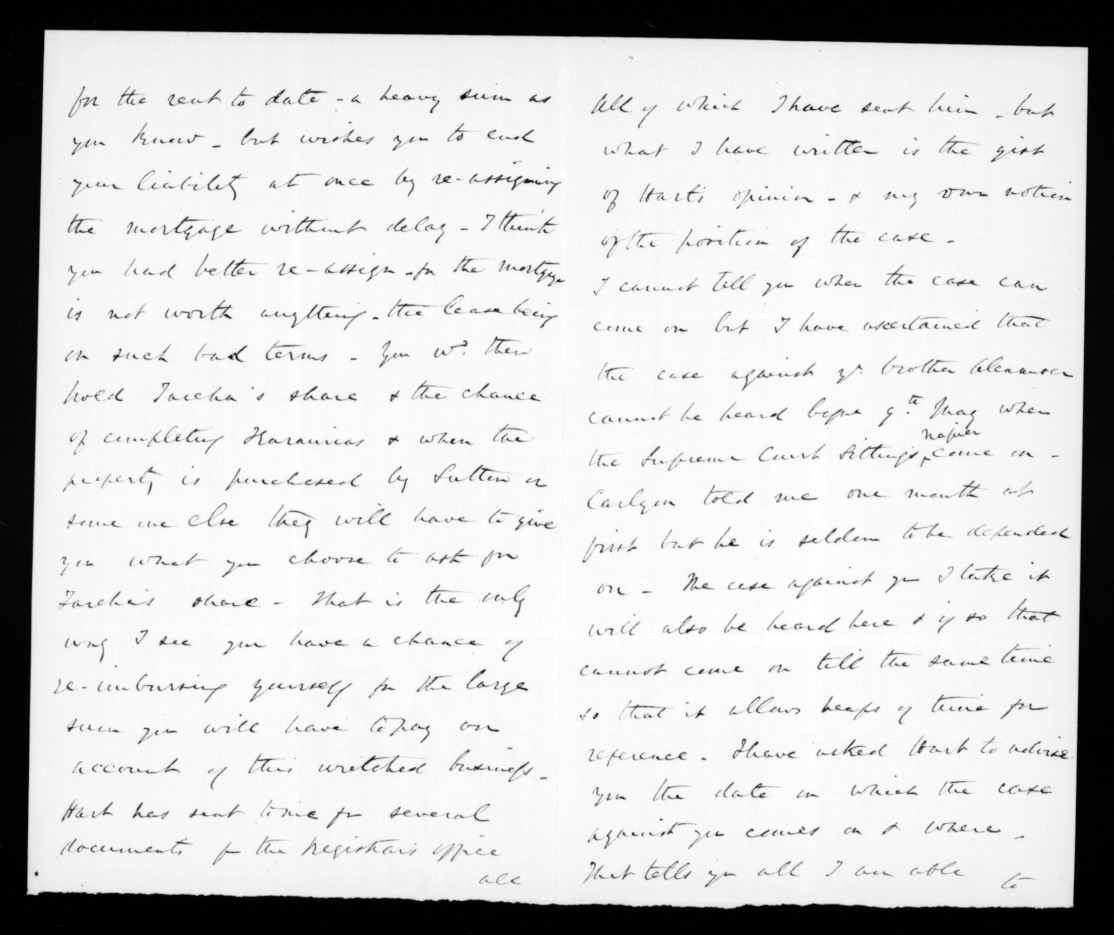 for the rent to date - a heavy sum as
you know - but wishes you to end
your liability at once by re-assigning
the mortgage without delay - I think
you had better re-assign - for the mortgage
is not worth anything - the lease being
on such bad terms - You wd. then
hold Tareha's share & the chance
of completing Karauria's & when the
property is purchased by Sutton or
some one else they will have to give
you what you choose to ask for
Tareha's share - That is the only
way I see you have a chance of
re-imbursing yourself for the large
sum you will have to pay on
account of this wretched business -
Hart has sent to me for several
documents fr the Registrar's office
all
All of which I have sent him - but
what I have written is the gist
of Hart's opinion - & my own notion
of the position of the case -
I cannot tell you when the case can
come on but I have ascertained that
the case against yr. brother Alexander
cannot be heard before 9th May when
the Supreme Court Sittings, Napier come on -
Carlyon told me one month at
first but he is seldom to be depended
on - The case against you I take it
will also be heard here & if so that
cannot come on till the same time
so that it allows heaps of time for
reference - I have asked Hart to advise
you the date on which the case
against you comes on & where -
That tells you all I am able
to